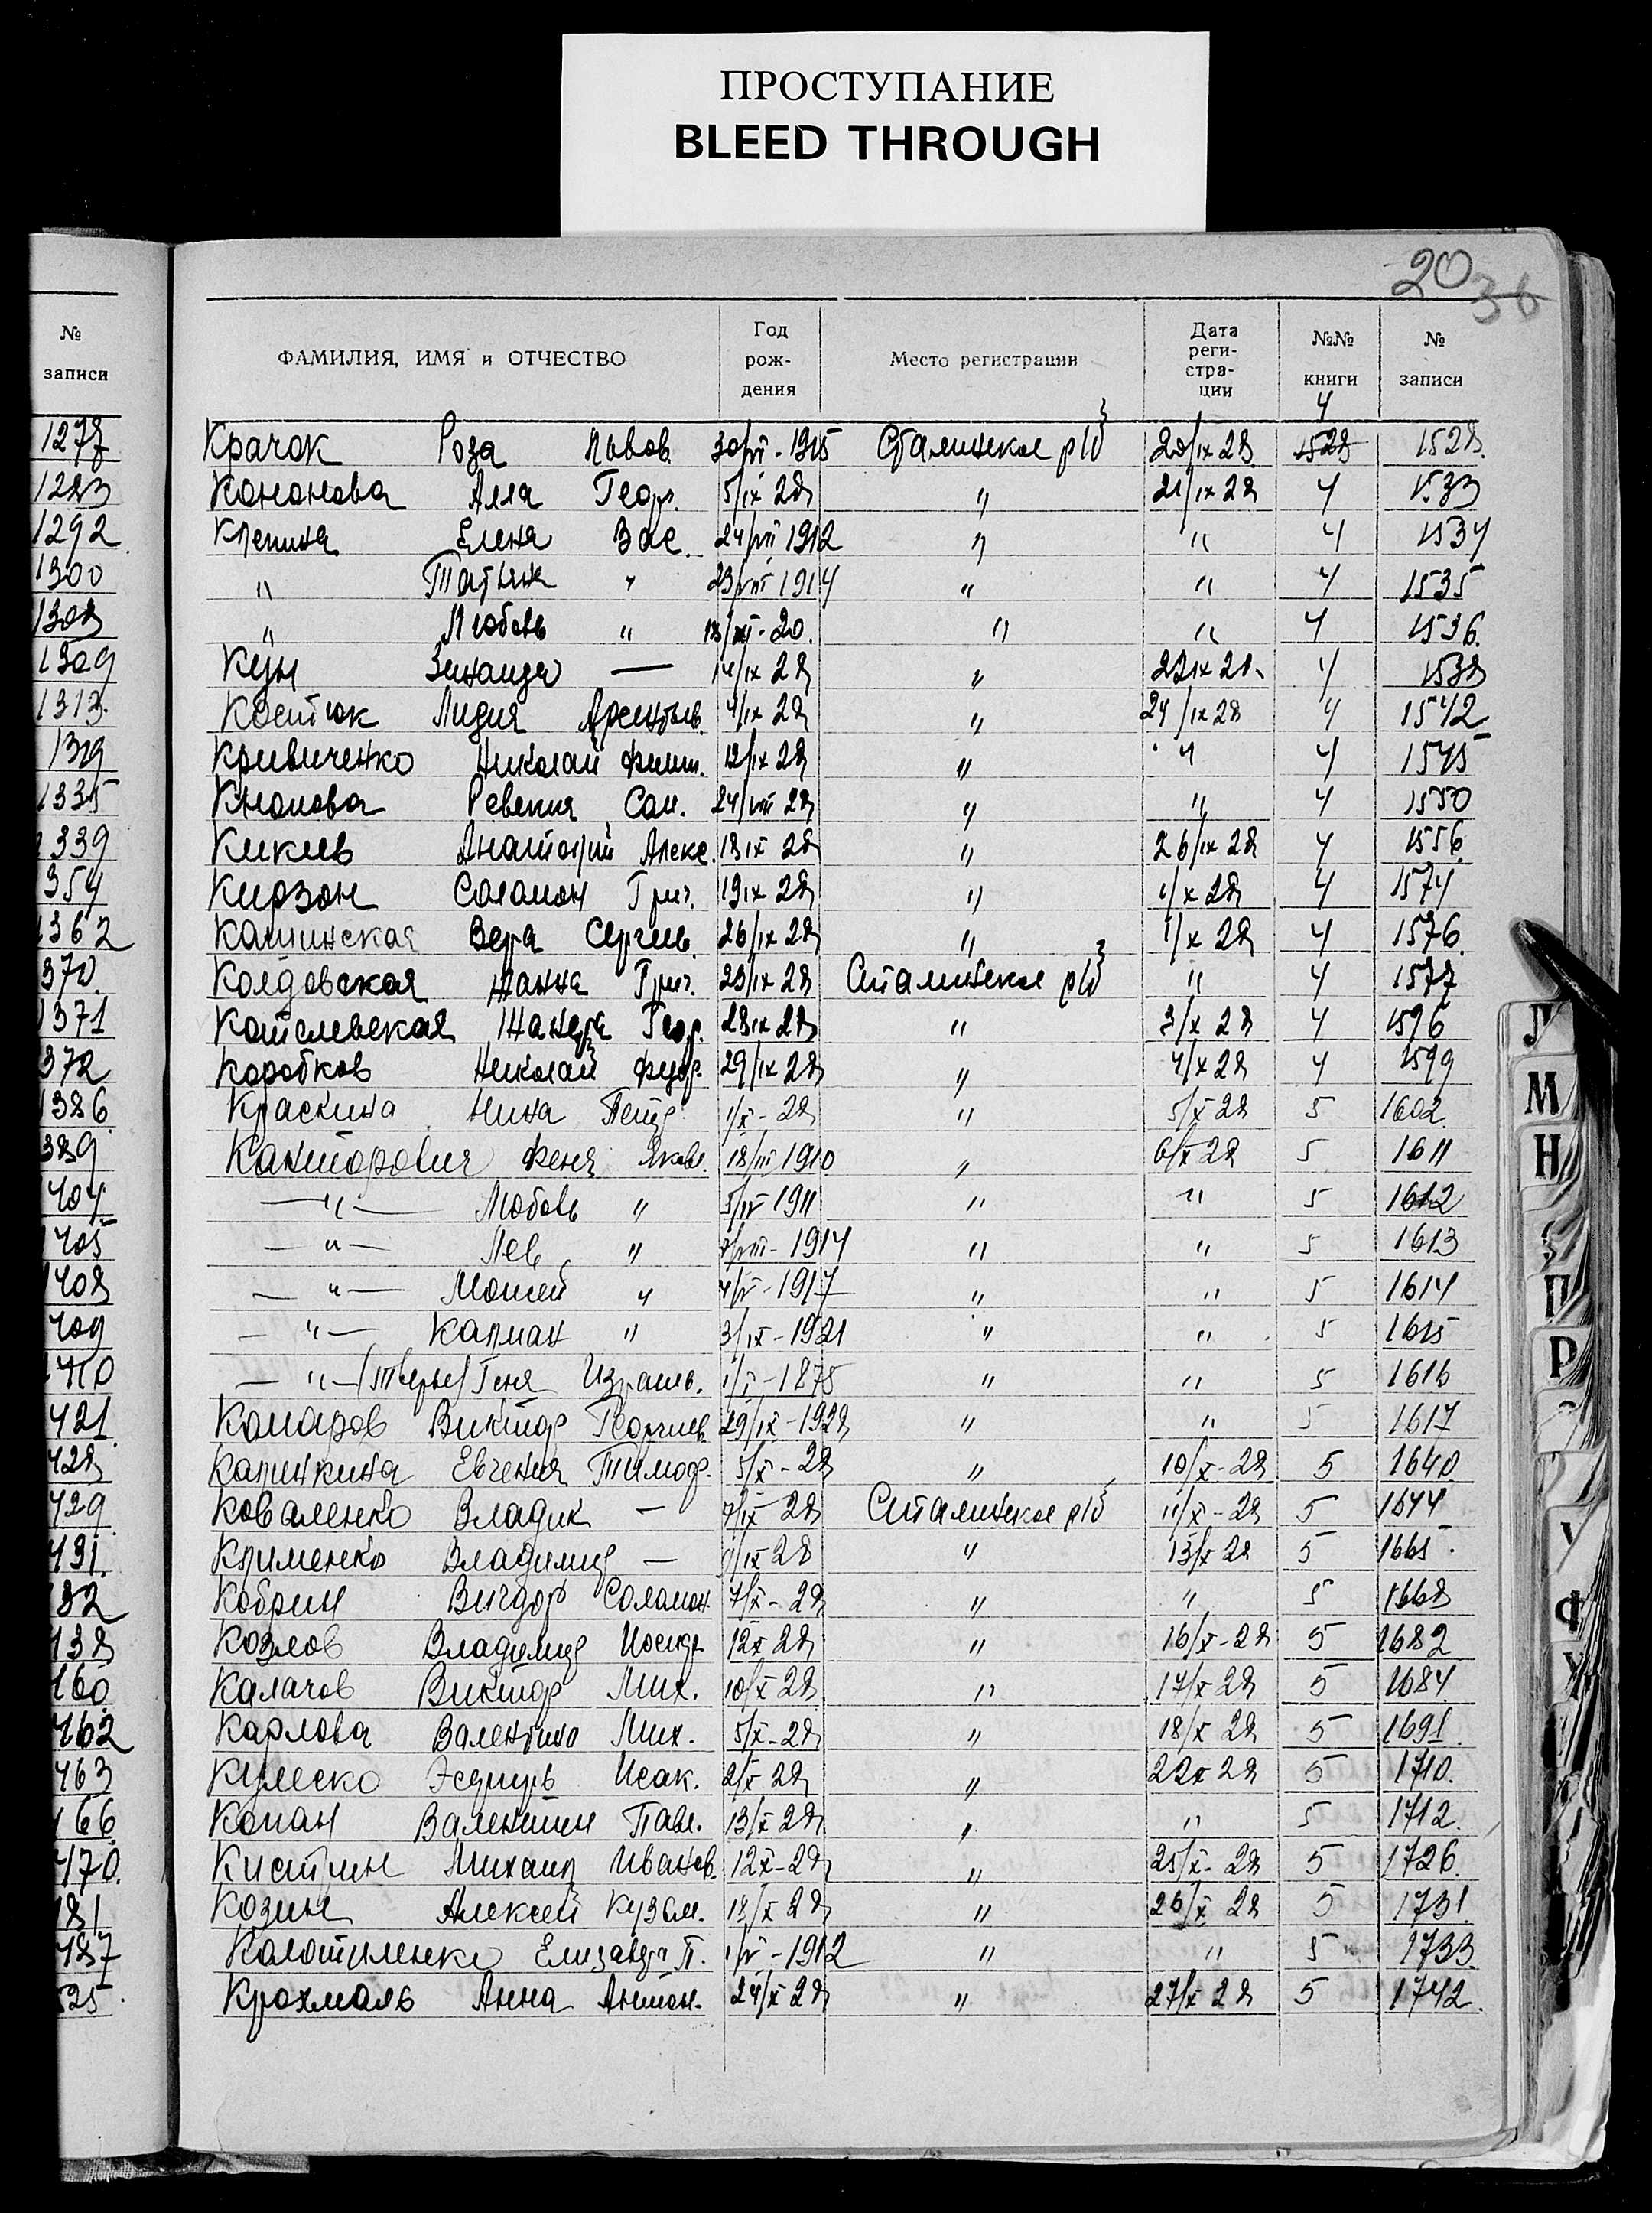 ПРОСТУПАНИЕ
BLEED THROUGH
20
36
№ записи
ФАМИЛИЯ, ИМЯ и ОТЧЕСТВО Год рож-дения Место регистрации Дата реги-стра-ции №№ книги № записи
1278 Крачок Роза Львов. 30/VI-1915 Сталинское р/б 20/IX 28 4 1528 1528.
1283 Кононова Алла Геор. 5/IX 28 " 21/IX 28 4 1533
1292 Клепина Елена Вас. 24/VII 1912 " " 4 1534
1300 " Татьяна " 23/VIII 1914 " " 4 1535
1308 " Любовь " " " 4 1536.
1309 Кун Зинаида — 14/IX 28 " 22 IX 28. 4 1538
1313. Костюк Лидия Арсентьев. 4/IX 28 " 24/IX 28 4 1542
1319 Кривиченко Николай Филип. 12/IX 28 " " 4 1545
1335 Кнопова Ревекка Сол. 24/VIII 28 " " 4 1550
1339 Кикив Анатолий Алекс. 18 IX 28 " 26/IX 28 4 1556
354 Кирзон Соломон Григ. 19 IX 28 " 1/X 28 4 1574
1362 Калинская Вера Сергеев. 26/IX 28 " 1/X 28 4 1576.
370. Колдовская Жанна Григ. 23/IX 28 Сталинское р/б " 4 1577
1371 Котелевская Жанета Геор. 28 IX 28 " 3/X 28 4 1596
372 Коробков Николай Федор. 29/IX 28 " 4/X 28 4 1599
1386 Краскина Нина Петр. 1/X-28 " 5/X 28 5 1602
389 Канторович Феня Яковл. 18/III 1910 " 6/X 28 5 1611
404 —"— Любовь " 5/IV 1911 " " 5 1612
405 —"— Лев " 1914 " " 5 1613
1408 —"— Мотей " 1917 " " 5 1614
409 —"— Калман " 3/IX-1921 " " 5 1615
410 —"— Геня Израиль. 1875 " " 5 1616
421. Комаров Виктор Георгиев. 29/IX-1928 " " 5 1617
428 Калинкина Евгения Тимоф. 5/X-28 " 10/X-28 5 1640.
429 Коваленко Владик — 7/IX 28 Сталинское р/б 11/X-28 5 1644
431. Клименко Владимир — 28 " 13/X 28 5 1665.
Кобрин Вигдор Соломон. 7/X-28 " " 5 1668
438 Козлов Владимир Иосиф. 12 X 28 " 16/X-28 5 1682
460. Калачов Виктор Мих. 10/X 28 " 17/X 28 5 1684
462 Карлова Валентина Мих. 5/X-28 " 18/X 28 5 1691.
463 Кулеско Эсфирь Исак. 2/X 28 " 22 X 28 5 1710.
466 Копан Валентин Павл. 13/X 28 " " 5 1712.
470. Кистрин Михаил Иванов. 12 X-28 " 25/X-28 5 1726.
481 Козин Алексей Кузьм. 18/X 28 " 26/X 28 5 1731.
487 Колотиленко Елизавет. П. 1912 " " 5 1733.
525. Крохмаль Анна Антон. 24/X 28 " 27/X 28 5 1742.
Л
М
Н
П
Р
У
Ф
Х